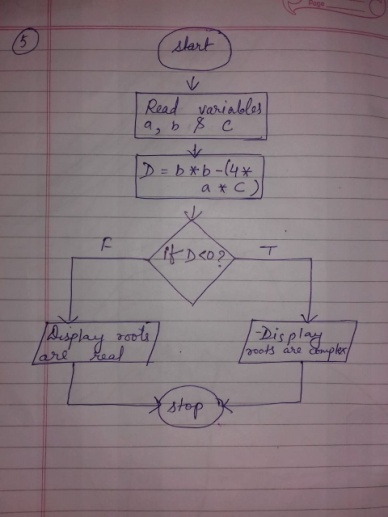 Page
5
start
Read variables
a, b & c
D = b * b - (4 *
a * c)
If D<0?
F
T
Display roots
are real
Display
roots are complex
stop